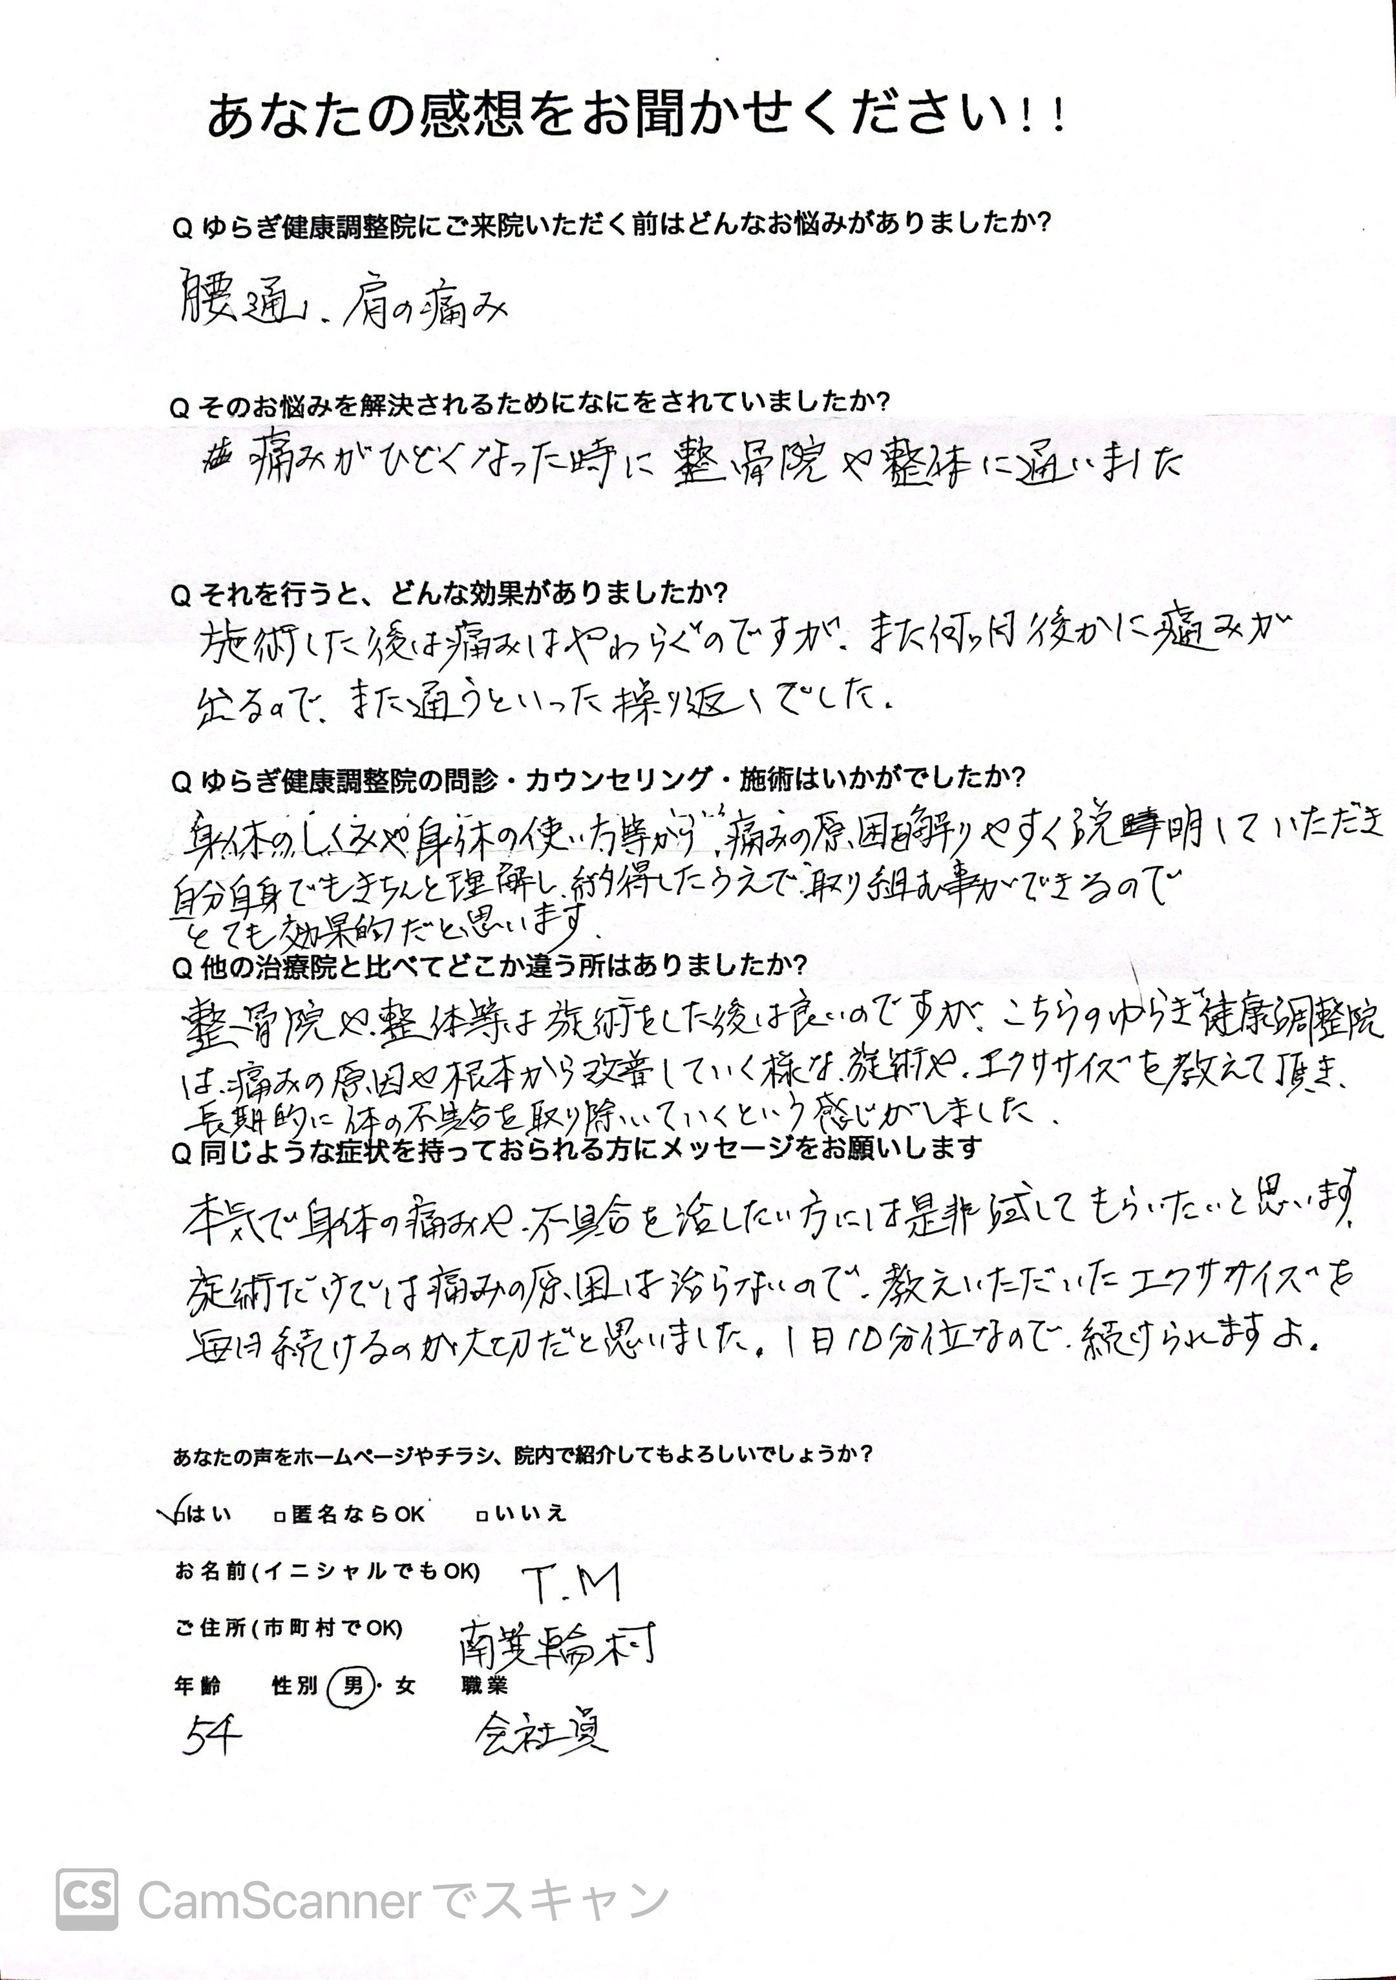 あなたの感想をお聞かせください!!
Q ゆらぎ健康調整院にご来院いただく前はどんなお悩みがありましたか?
腰通、肩の痛み
Q そのお悩みを解決されるためになにをされていましたか?
痛みがひどくなった時に整骨院や整体に通いました
Q それを行うと、どんな効果がありましたか?
施術した後は痛みはやわらぐのですが、また何ヶ月後かに痛みが
出るので、また通うといった繰り返しでした。
Q ゆらぎ健康調整院の問診・カウンセリング・施術はいかがでしたか?
身体のしくみや身体の使い方等から、痛みの原因を解りやすく説明していただき
自分自身でもきちんと理解し、納得したうえで取り組む事ができるので
とても効果的だと思います。
Q 他の治療院と比べてどこか違う所はありましたか?
整骨院や整体等は施術をした後は良いのですが、こちらのゆらぎ健康調整院
は、痛みの原因や根本から改善していく様な、施術や、エクササイズを教えて頂き、
長期的に体の不具合を取り除いていくという感じがしました。
Q 同じような症状を持っておられる方にメッセージをお願いします
本気で身体の痛みや、不具合を治したい方には是非試してもらいたいと思います。
施術だけでは痛みの原因は治らないので、教えいただいたエクササイズを
毎日続けるのが大切だと思いました。1日10分位なので、続けられますよ。
あなたの声をホームページやチラシ、院内で紹介してもよろしいでしょうか?
はい □匿名ならOK □いいえ
お名前(イニシャルでもOK) T.M
ご住所(市町村でOK) 南箕輪村
年齢 性別 男・女 職業
54 会社員
CS CamScannerでスキャン